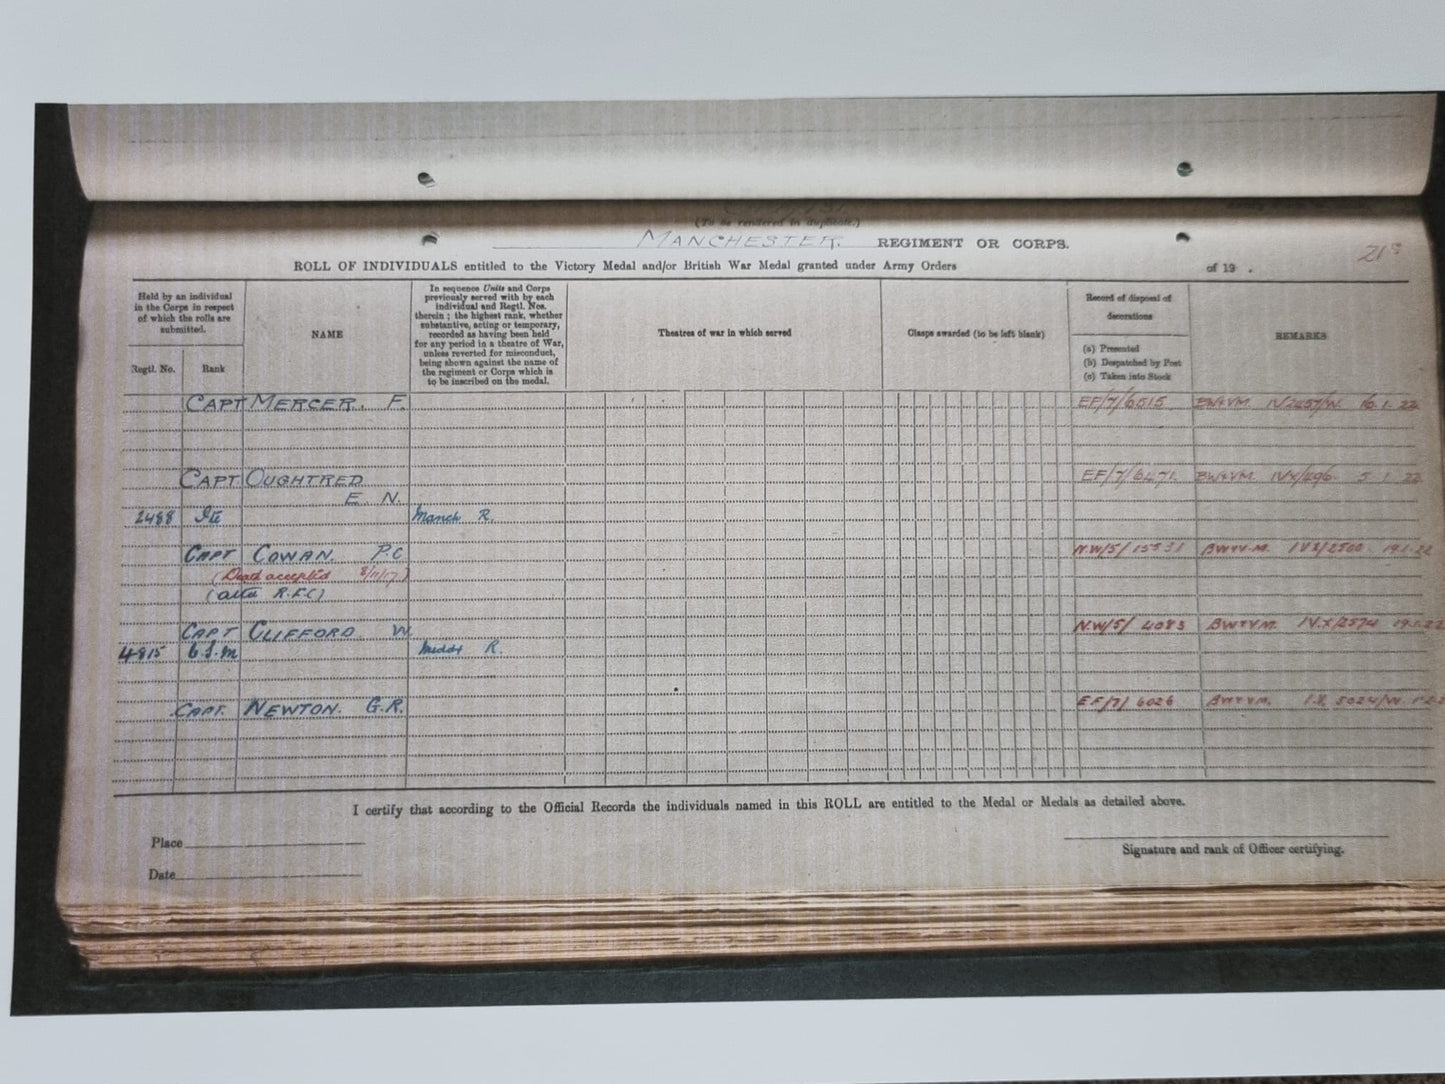 (To be rendered in duplicate.)
MANCHESTER. REGIMENT OR CORPS.
ROLL OF INDIVIDUALS entitled to the Victory Medal and/or British War Medal granted under Army Orders of 19 .
Held by an individual
in the Corps in respect
of which the rolls are
submitted.
Regtl. No. Rank
NAME
In sequence Units and Corps
previously served with by each
individual and Regtl. Nos.
therein ; the highest rank, whether
substantive, acting or temporary,
recorded as having been held
for any period in a theatre of War,
unless reverted for misconduct,
being shown against the name of
the regiment or Corps which is
to be inscribed on the medal.
Theatres of war in which served
Clasps awarded (to be left blank)
Record of disposal of
decorations
(a) Presented
(b) Despatched by Post
(c) Taken into Stock
REMARKS
CAPT MERCER. F. EF/7/6515 BW+VM. 16.1.22
CAPT OUGHTRED EF/7/6471. BW+VM. IVX/496. 5.1.22
E. N.
2488 Pte Manch R.
CAPT COWAN. P.C N.W/5/15531 BW+V.M. IVX/2500 19.1.22
(Death accepted 8/11/17)
(attd R.F.C)
CAPT CLIFFORD W. N.W/5/ 4083 BW+V.M. IV.X/2574 19.1.22
4815 C.S.M Middx R.
CAPT. NEWTON. G.R. EF/7/ 6026 BW+VM. I.X. 5024/W
I certify that according to the Official Records the individuals named in this ROLL are entitled to the Medal or Medals as detailed above.
Place
Signature and rank of Officer certifying.
Date